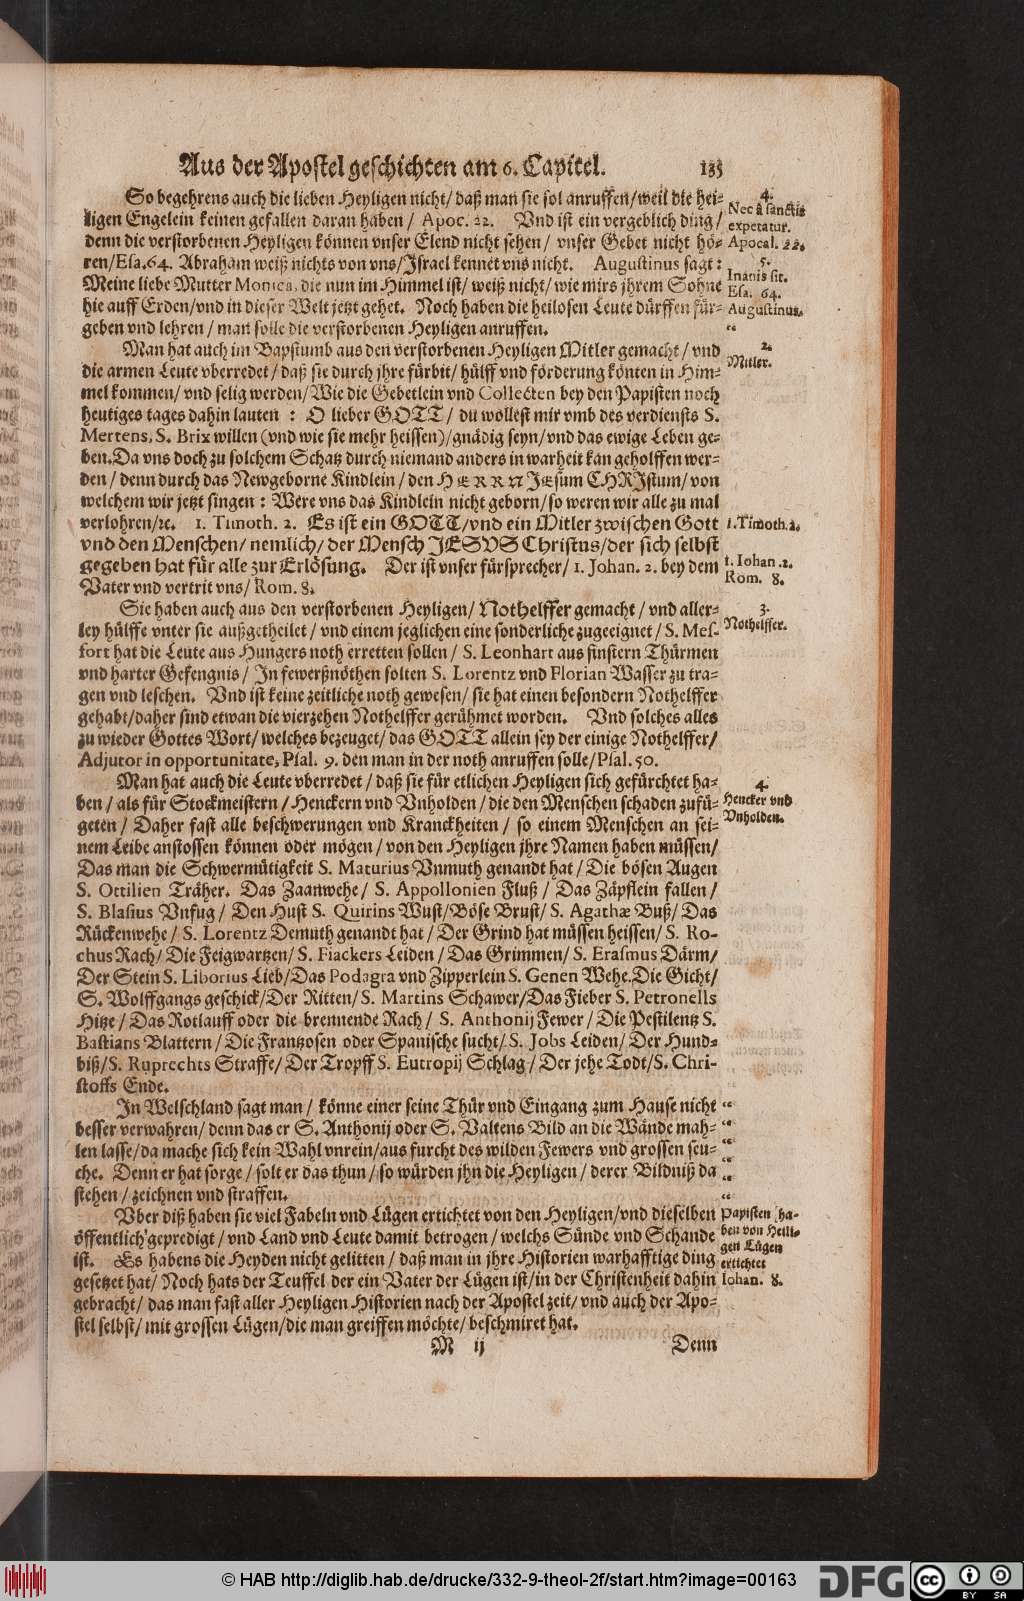 Aus der Apostel geschichten am 6. Capitel. 135
So begehrens auch die lieben Heyligen nicht/ daß man sie sol anruffen/ weil die hei-
ligen Engelein keinen gefallen daran haben / Apoc. 22. Vnd ist ein vergeblich ding /
denn die verstorbenen Heyligen können vnser Elend nicht sehen / vnser Gebet nicht hö-
ren/Esa. 64. Abraham weiß nichts von vns/Israel kennet vns nicht. Augustinus sagt:
Meine liebe Mutter Monica, die nun im Himmel ist/ weiß nicht/ wie mirs jhrem Sohne
hie auff Erden/vnd in dieser Welt jetzt gehet. Noch haben die heilosen Leute dürffen für-
geben vnd lehren / man solle die verstorbenen Heyligen anruffen.
4.
Nec à sanctis
expetatur.
Apocal. 22.
5.
Inanis sit.
Esa. 64.
Augustinus.
“
Man hat auch im Bapstumb aus den verstorbenen Heyligen Mitler gemacht / vnd
die armen Leute vberredet / daß sie durch jhre fürbit/ hülff vnd förderung könten in Him-
mel kommen/ vnd selig werden/ Wie die Gebetlein vnd Collecten bey den Papisten noch
heutiges tages dahin lauten : O lieber GOTT / du wöllest mir vmb des verdiensts S.
Mertens, S. Brix willen (vnd wie sie mehr heissen)/gnädig seyn/vnd das ewige Leben ge-
ben. Da vns doch zu solchem Schatz durch niemand anders in warheit kan geholffen wer-
den / denn durch das Newgeborne Kindlein / den HERRN JEsum CHRIstum/ von
welchem wir jetzt singen : Were vns das Kindlein nicht geborn/ so weren wir alle zu mal
verlohren/ꝛc. 1. Timoth. 2. Es ist ein GOTT/vnd ein Mitler zwischen Gott
vnd den Menschen/ nemlich/ der Mensch JESVS Christus/der sich selbst
gegeben hat für alle zur Erlösung. Der ist vnser fürsprecher/ 1. Johan. 2. bey dem
Vater vnd vertrit vns/ Rom. 8.
2.
Mitler.
1. Timoth. 2.
1. Iohan. 2.
Rom. 8.
Sie haben auch aus den verstorbenen Heyligen/ Nothelffer gemacht / vnd aller-
ley hülffe vnter sie außgetheilet / vnd einem jeglichen eine sonderliche zugeeignet / S. Mes-
fort hat die Leute aus Hungers noth erretten sollen / S. Leonhart aus finstern Thürmen
vnd harter Gefengnis / In fewerßnöthen solten S. Lorentz vnd Florian Wasser zu tra-
gen vnd leschen. Vnd ist keine zeitliche noth gewesen/ sie hat einen besondern Nothelffer
gehabt/daher sind etwan die vierzehen Nothelffer gerühmet worden. Vnd solches alles
zu wieder Gottes Wort/ welches bezeuget/ das GOTT allein sey der einige Nothelffer/
Adjutor in opportunitate, Psal. 9. den man in der noth anruffen solle/Psal. 50.
3.
Nothelffer.
Man hat auch die Leute vberredet / daß sie für etlichen Heyligen sich gefürchtet ha-
ben / als für Stockmeistern / Henckern vnd Vnholden / die den Menschen schaden zufü-
geten / Daher fast alle beschwerungen vnd Kranckheiten / so einem Menschen an sei-
nem Leibe anstossen können oder mögen / von den Heyligen jhre Namen haben müssen/
Das man die Schwermütigkeit S. Maturius Vnmuth genandt hat / Die bösen Augen
S. Ottilien Träher. Das Zaanwehe / S. Appollonien Fluß / Das Zäpflein fallen /
S. Blasius Vnfug / Den Hust S. Quirins Wust/Böse Brust/ S. Agathæ Buß/ Das
Rückenwehe / S. Lorentz Demuth genandt hat / Der Grind hat müssen heissen/ S. Ro-
chus Rach/ Die Feigwartzen/ S. Fiackers Leiden / Das Grimmen/ S. Erasmus Därm/
Der Stein S. Liborius Lieb/Das Podagra vnd Zipperlein S. Genen Wehe. Die Gicht/
S. Wolffgangs geschick/Der Ritten/ S. Martins Schawer/Das Fieber S. Petronells
Hitze / Das Rotlauff oder die brennende Rach / S. Anthonij Fewer / Die Pestilentz S.
Bastians Blattern / Die Frantzosen oder Spanische sucht/ S. Jobs Leiden/ Der Hund-
biß/S. Ruprechts Straffe/ Der Tropff S. Eutropij Schlag / Der jehe Todt/S. Chri-
stoffs Ende.
4.
Hencker vnd
Vnholden.
In Welschland sagt man / könne einer seine Thür vnd Eingang zum Hause nicht
besser verwahren/ denn das er S. Anthonij oder S. Valtens Bild an die Wände mah-
len lasse/da mache sich kein Wahl vnrein/aus furcht des wilden Fewers vnd grossen seu-
che. Denn er hat sorge / solt er das thun / so würden jhn die Heyligen / derer Bildniß da
stehen / zeichnen vnd straffen.
“
“
“
“
“
Vber diß haben sie viel Fabeln vnd Lügen ertichtet von den Heyligen/vnd dieselben
öffentlich gepredigt / vnd Land vnd Leute damit betrogen / welchs Sünde vnd Schande
ist. Es habens die Heyden nicht gelitten / daß man in jhre Historien warhafftige ding
gesetzet hat/ Noch hats der Teuffel der ein Vater der Lügen ist/in der Christenheit dahin
gebracht/ das man fast aller Heyligen Historien nach der Apostel zeit/ vnd auch der Apo-
stel selbst/ mit grossen Lügen/die man greiffen möchte/ beschmiret hat.
Papisten ha-
ben von Heili-
gen Lügen
ertichtet
Iohan. 8.
M ij Denn
© HAB http://diglib.hab.de/drucke/332-9-theol-2f/start.htm?image=00163
DFG
cc BY SA